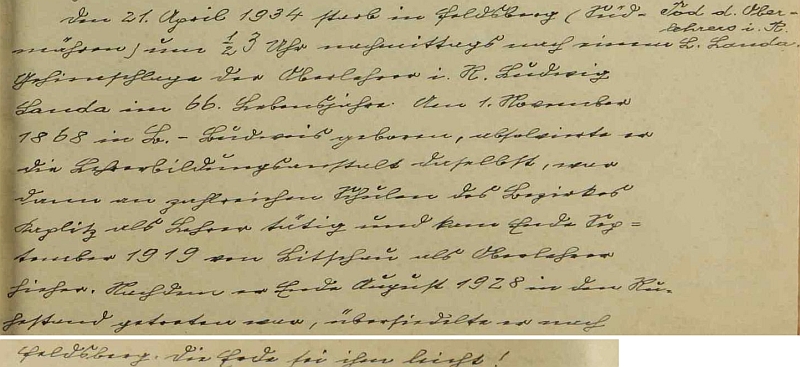 Den 21. April 1934 starb in Feldsberg (Süd-
mähren) um ½ 3 Uhr nachmittags nach einem
Gehirnschlage der Oberlehrer i. R. Ludwig
Landa im 66. Lebensjahre. Am 1. November
1868 in B. - Budweis geboren, absolvierte er
die Lehrerbildungsanstalt daselbst, war
dann an zahlreichen Schulen des Bezirkes
Kaplitz als Lehrer tätig und kam Ende Sep=
tember 1919 von Litschau als Oberlehrer
hieher. Nachdem er Ende August 1928 in den Ru-
hestand getreten war, übersiedelte er nach
Feldsberg. Die Erde sei ihm leicht!
Tod d. Ober-
lehrers i. R.
L. Landa.